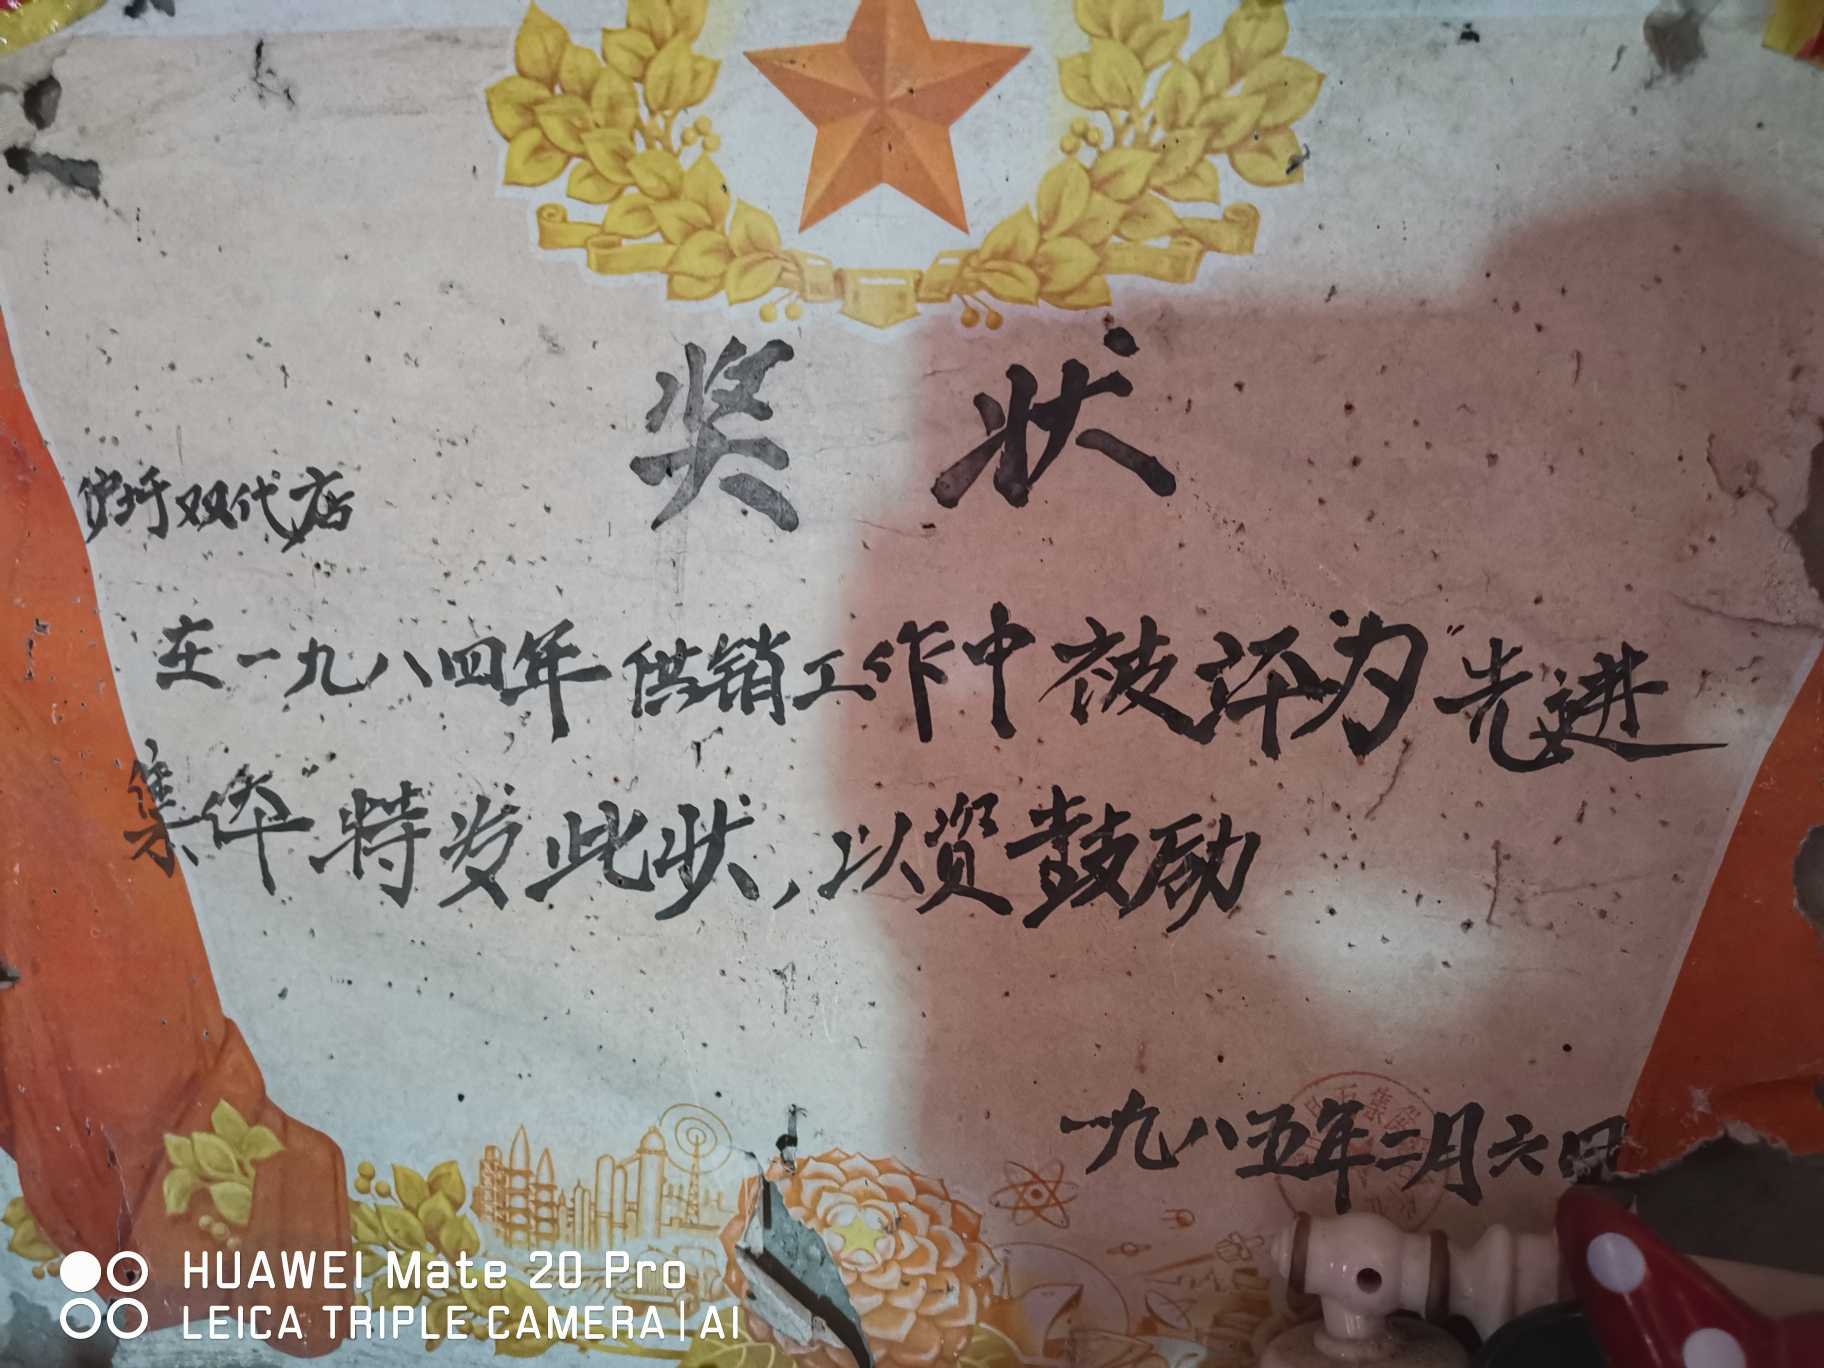 奖状
坪双代店
在一九八四年供销工作中被评为"先进
集体"特发此状，以资鼓励
一九八五年二月六日
HUAWEI Mate 20 Pro
LEICA TRIPLE CAMERA | AI